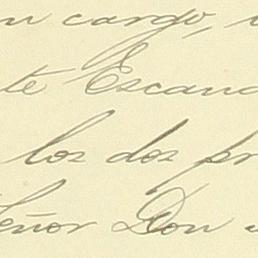 cargo,
te Escan
los dos pr
Señor Don